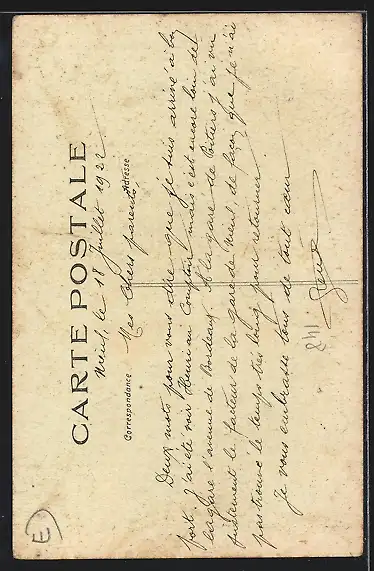 CARTE POSTALE
Nieul, le 18 Juillet 1922
Correspondance
Adresse
Mes Chers parents
Deux mots pour vous dire que je suis arrivé à bon
port. J'ai été voir Henri au Comptoir mais c'est encore loin de
la gare l'avenue de Bordeaux. A la gare de Poitiers j'ai vu
justement le facteur de la gare de Nieul, de façon que je n'ai
pas trouvé le temps très long pour retourner.
Je vous embrasse tous de tout cœur
841
E